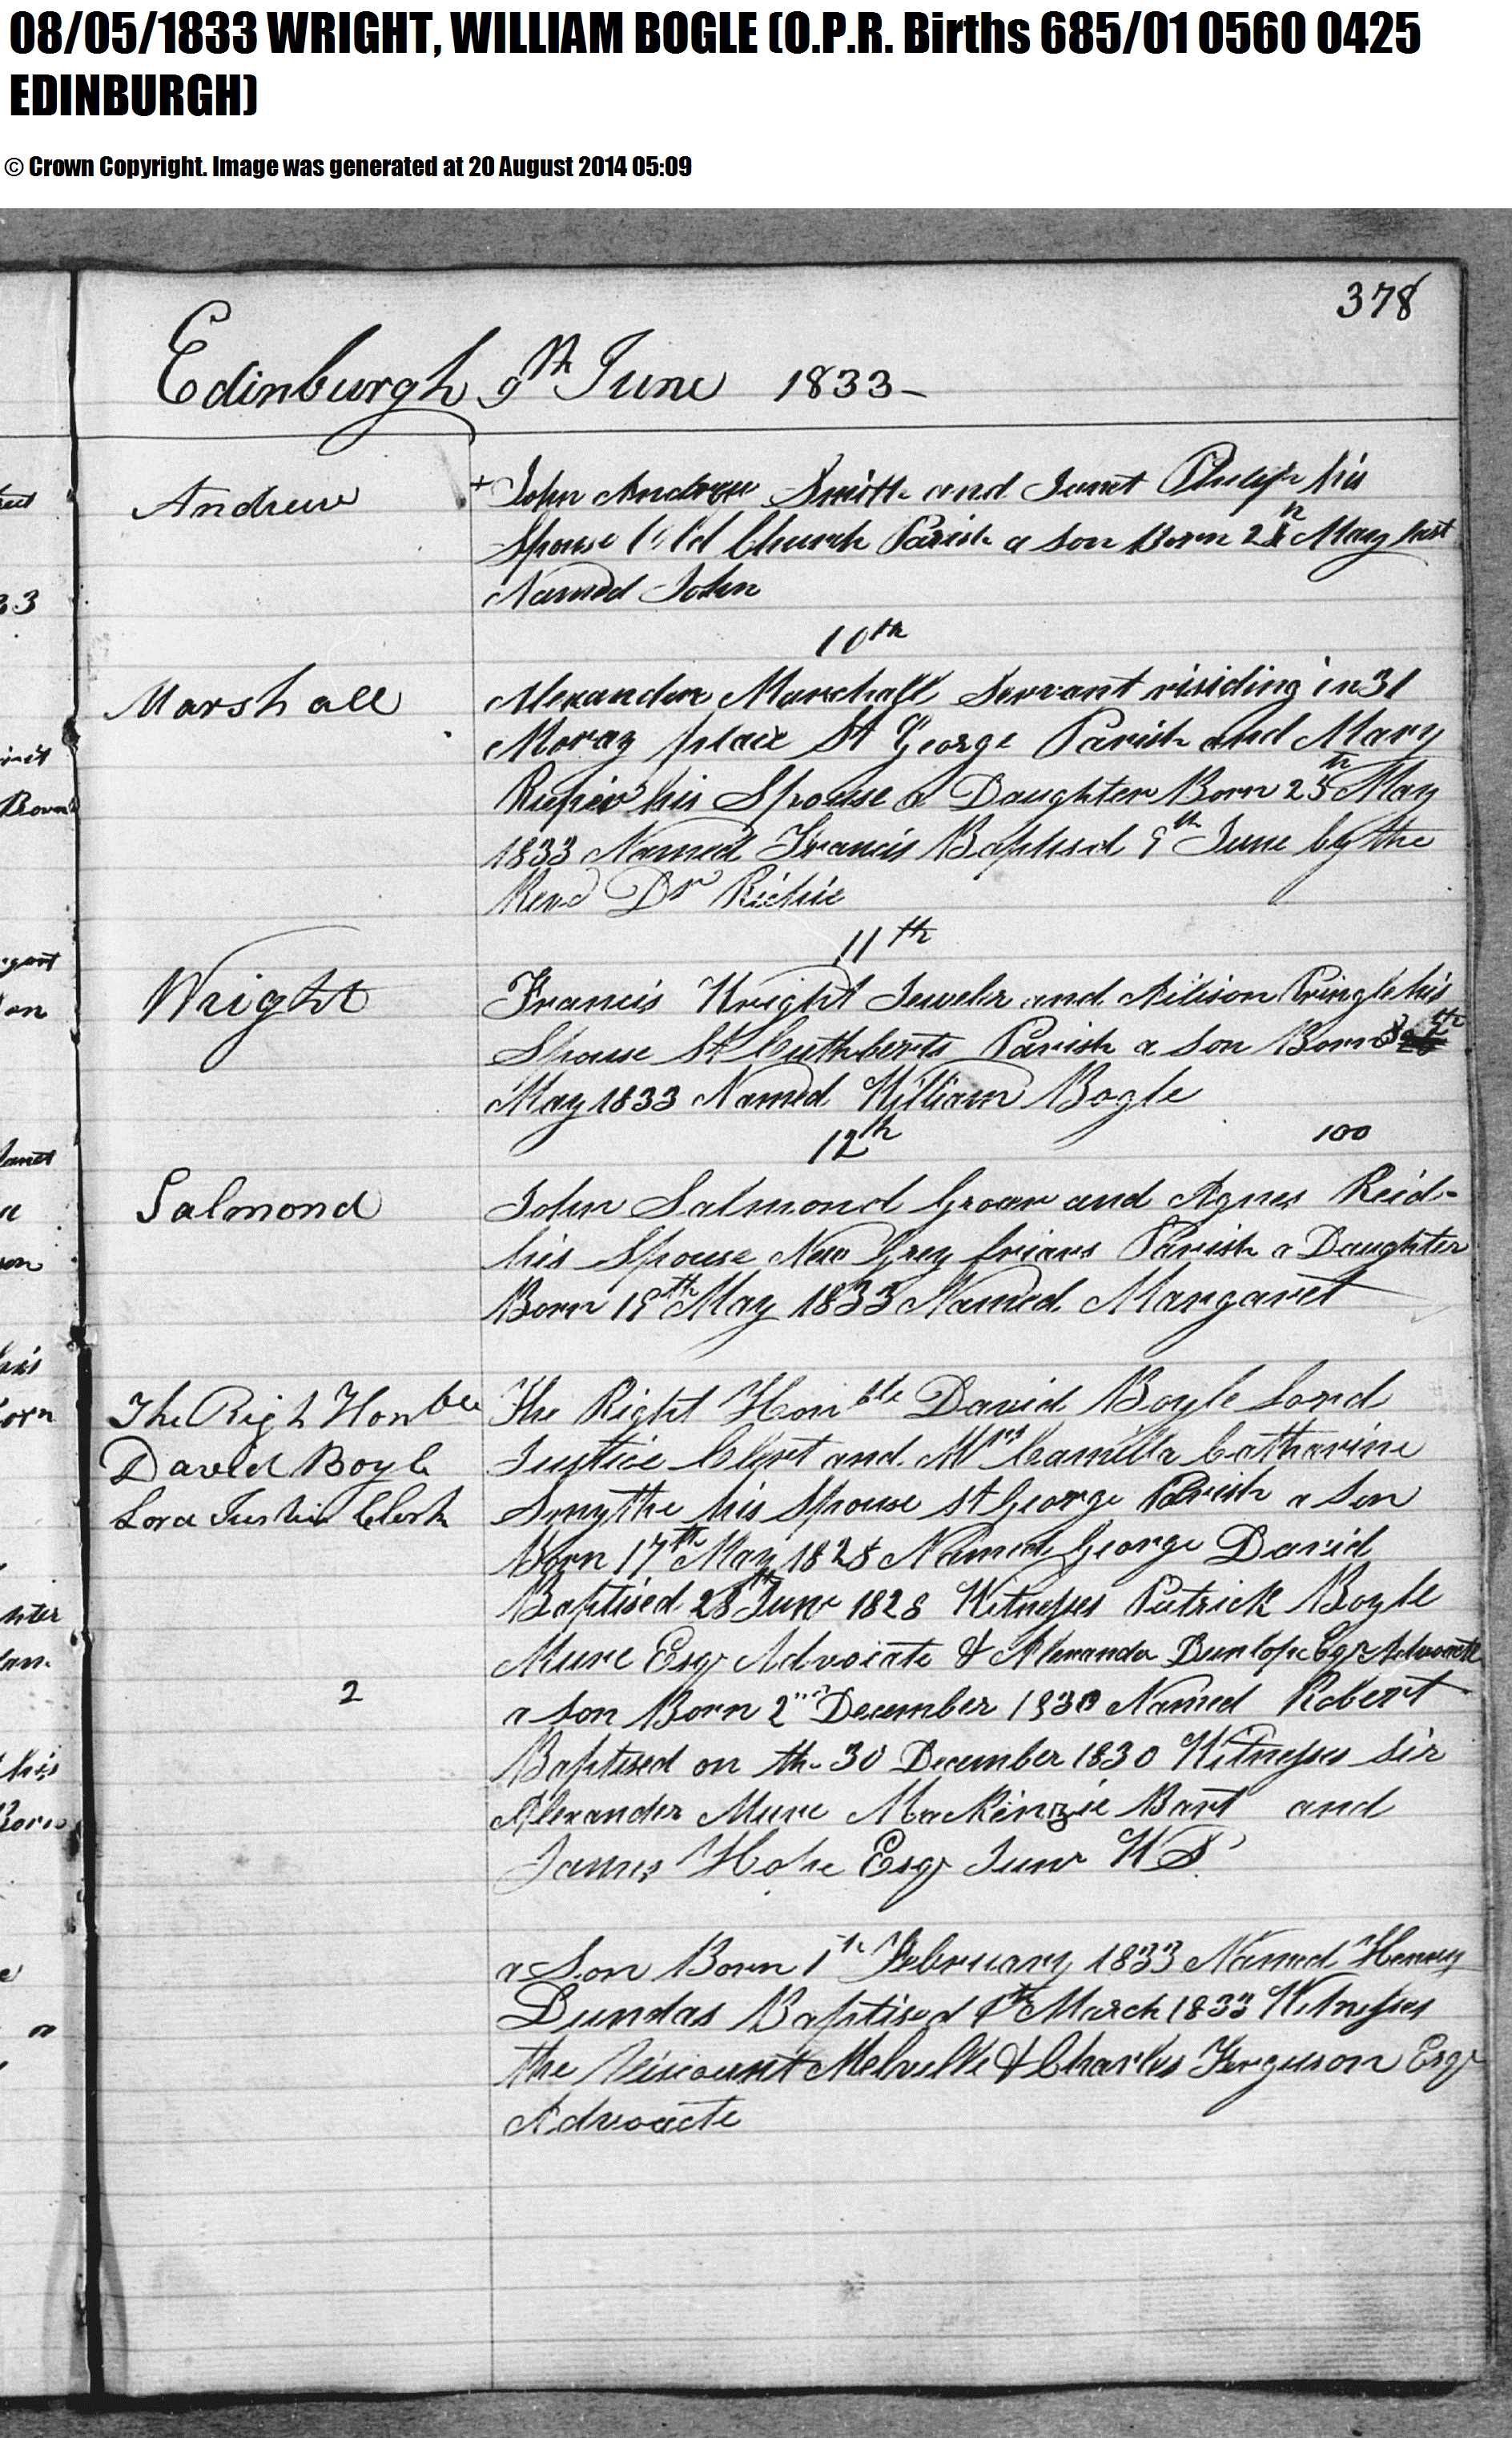 08/05/1833 WRIGHT, WILLIAM BOGLE (O.P.R. Births 685/01 0560 0425
EDINBURGH)
© Crown Copyright. Image was generated at 20 August 2014 05:09
378
Edinburgh 9th June 1833
Andrew
John Andrew Smith and Janet Philip his
Spouse Old Church Parish a Son Born May last
Named John
10th
Marshall
Alexander Marshall Servant risiding in 31
Moray place St George Parish and Mary
his Spouse a Daughter Born 25th May
1833 Named Francis Baptised 9th June by the
Revd Dr Richie
11th
Wright
Francis Wright Jeweler and Ailison Pringle his
Spouse St Cuthberts Parish a Son Born 8th
May 1833 Named William Bogle
12th
100
Salmond
John Salmond Grocer and Agnes Reid
his Spouse New Grey friars Parish a Daughter
Born 19th May 1833 Named Margaret
The Righ Honble
David Boyle
Lord Justice Clerk
The Right Honble David Boyle Lord
Justice Clerk and Mrs Camilla Catharine
Smythe his Spouse St George Parish a Son
Born 17th May 1828 Named George David
Baptised 28th June 1828 Witnesses Patrick Boyle
Mure Esqr Advocate & Alexander Dunlop Esqr Advocate
2
a Son Born 2nd December 1830 Named Robert
Baptised on the 30 December 1830 Witnesses Sir
Alexander Mure MacKenzie Bart and
James Hope Esqr Junr WS
a Son Born February 1833 Named Henry
Dundas Baptised March 1833 Witnesses
the Viscount Melville & Charles Ferguson Esqr
Advoacte